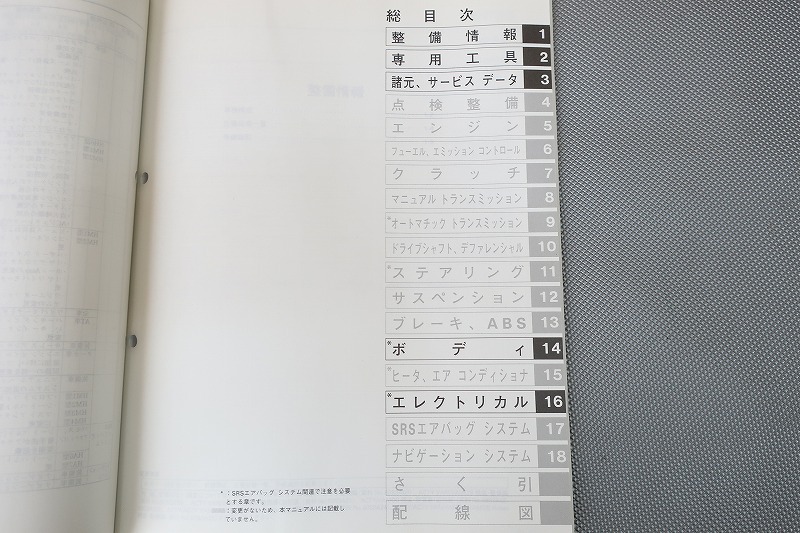 総目次
整備情報 1
専用工具 2
諸元、サービス データ 3
点検整備 4
エンジン 5
フューエル、エミッション コントロール 6
クラッチ 7
マニュアル トランスミッション 8
*オートマチック トランスミッション 9
ドライブシャフト、デファレンシャル 10
*ステアリング 11
サスペンション 12
ブレーキ、ABS 13
*ボディ 14
*ヒータ、エア コンディショナ 15
*エレクトリカル 16
SRSエアバッグ システム 17
ナビゲーション システム 18
さく引
配線図
*：SRSエアバッグ システム関連で注意を必要
とする章です。
：変更がないため、本マニュアルには記載し
ていません。